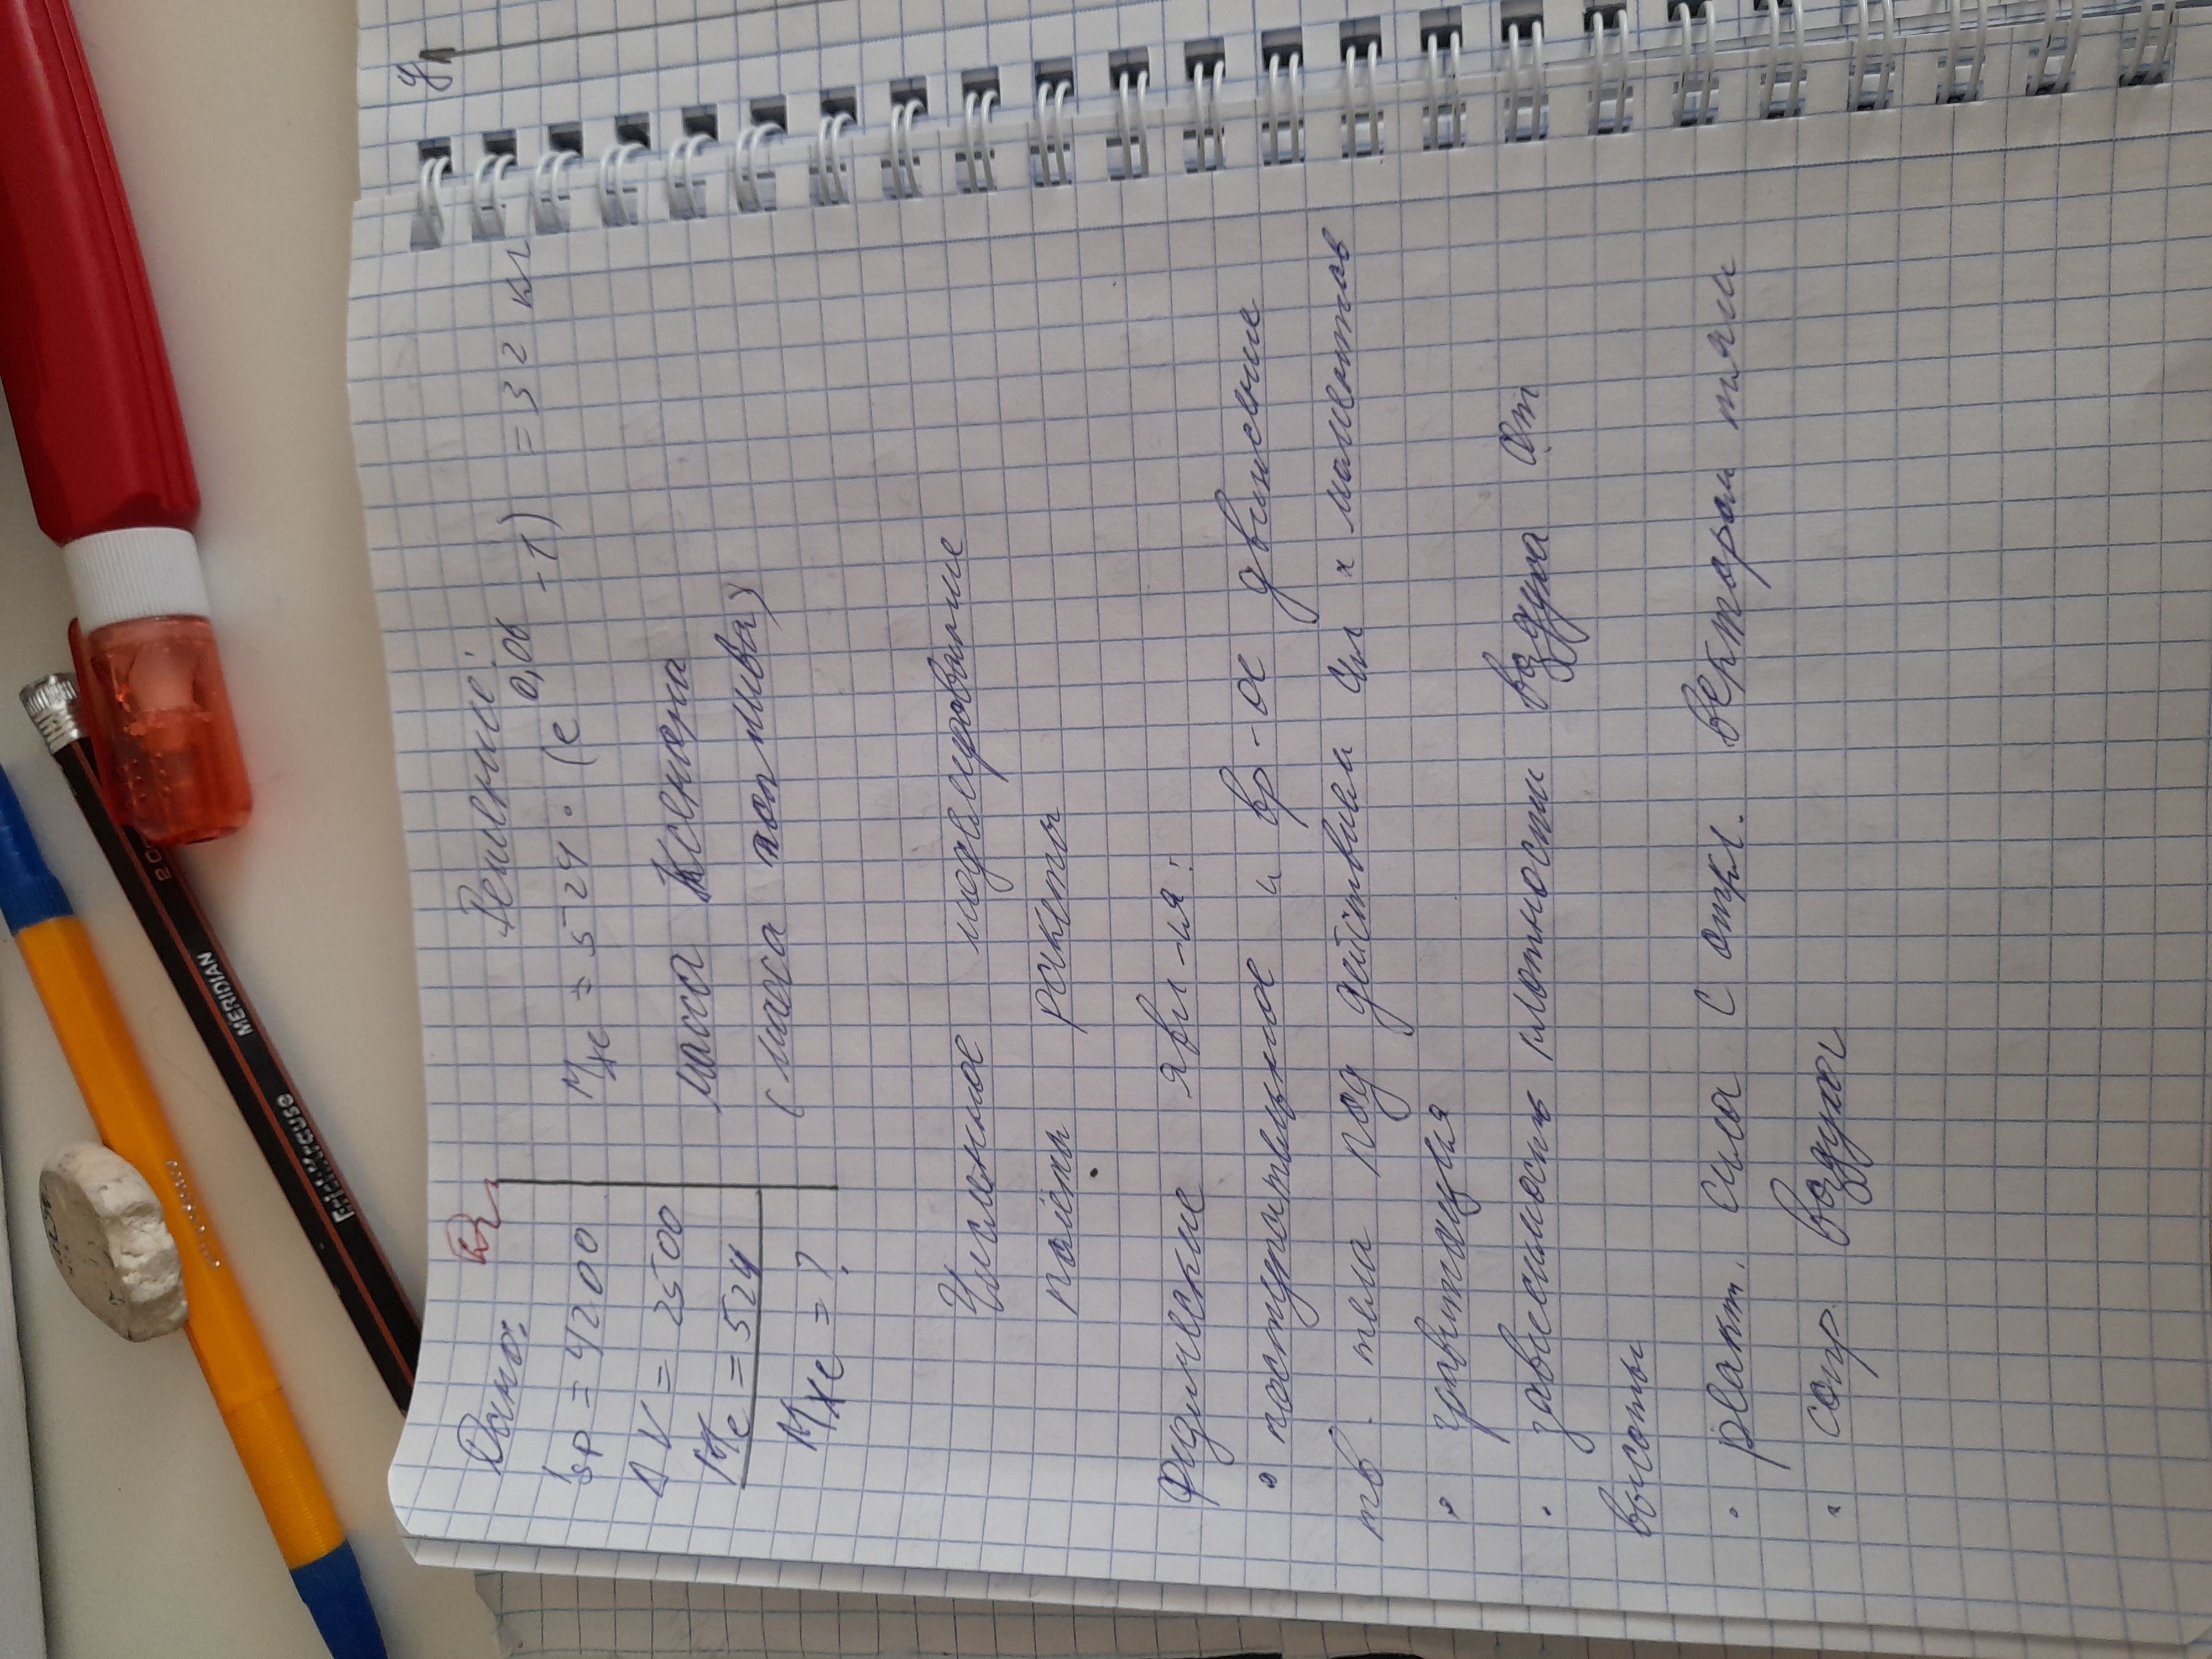 ErichKrause MERIDIAN
Дано:
Isp = 4200
ΔV = 2500
Mc = 524
Mxe = ?
Решение:
Mxe = 524 · (e^0,06 - 1) = 32 кг
масса Ксенона
(масса топлива)
Численное моделирование
полёта ракеты
Физические явл-ия:
• поступательное и вр-ое движение
тв. тела под действием сил и моментов
• гравитация
• зависимость плотности воздуха от
высоты
• реакт. сила с откл. вектором тяги
• сопр. воздуха
y